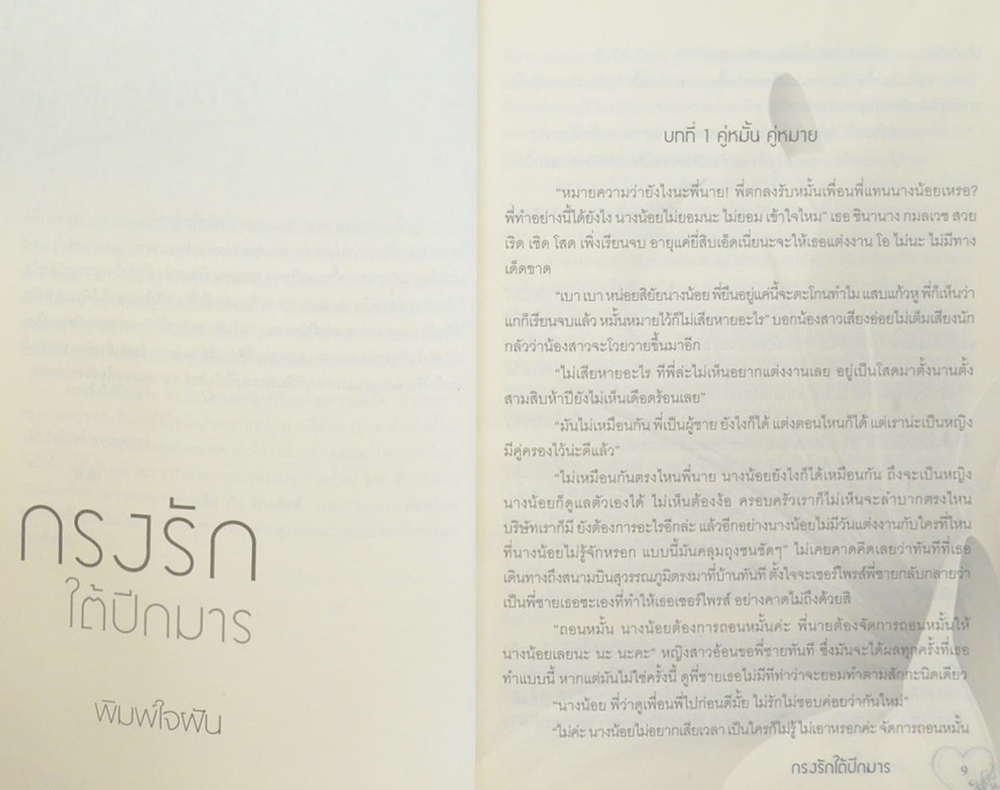 กรงรัก
ใต้ปีกมาร
พิมพ์ใจฝัน
บทที่ 1 คู่หมั้น คู่หมาย
"หมายความว่ายังไงนะพี่นาย! พี่ตกลงรับหมั้นเพื่อนพี่แทนนางน้อยเหรอ?
พี่ทำอย่างนี้ได้ยังไง นางน้อยไม่ยอมนะ ไม่ยอม เข้าใจไหม" เธอ ชินานาง กมลเวช สวย
เริด เชิด โสด เพิ่งเรียนจบ อายุแค่ยี่สิบเอ็ดเนี่ยนะจะให้เธอแต่งงาน โอ ไม่นะ ไม่มีทาง
เด็ดขาด
"เบา เบา หน่อยสิยัยนางน้อย พี่ยืนอยู่แค่นี้จะตะโกนทำไม แสบแก้วหู พี่ก็เห็นว่า
แกก็เรียนจบแล้ว หมั้นหมายไว้ก็ไม่เสียหายอะไร" บอกน้องสาวเสียงอ่อยไม่เต็มเสียงนัก
กลัวว่าน้องสาวจะโวยวายขึ้นมาอีก
"ไม่เสียหายอะไร ทีพี่ล่ะไม่เห็นอยากแต่งงานเลย อยู่เป็นโสดมาตั้งนานตั้ง
สามสิบห้าปียังไม่เห็นเดือดร้อนเลย"
"มันไม่เหมือนกัน พี่เป็นผู้ชาย ยังไงก็ได้ แต่งตอนไหนก็ได้ แต่เราน่ะเป็นหญิง
มีคู่ครองไว้น่ะดีแล้ว"
"ไม่เหมือนกันตรงไหนพี่นาย นางน้อยยังไงก็ได้เหมือนกัน ถึงจะเป็นหญิง
นางน้อยก็ดูแลตัวเองได้ ไม่เห็นต้องง้อ ครอบครัวเราก็ไม่เห็นจะลำบากตรงไหน
บริษัทเราก็มี ยังต้องการอะไรอีกล่ะ แล้วอีกอย่างนางน้อยไม่มีวันแต่งงานกับใครที่ไหน
ที่นางน้อยไม่รู้จักหรอก แบบนี้มันคลุมถุงชนชัดๆ" ไม่เคยคาดคิดเลยว่าทันทีที่เธอ
เดินทางถึงสนามบินสุวรรณภูมิตรงมาที่บ้านทันที ตั้งใจจะเซอร์ไพรส์พี่ชายกลับกลายว่า
เป็นพี่ชายเธอซะเองที่ทำให้เธอเซอร์ไพรส์ อย่างคาดไม่ถึงด้วยสิ
"ถอนหมั้น นางน้อยต้องการถอนหมั้นค่ะ พี่นายต้องจัดการถอนหมั้นให้
นางน้อยเลยนะ นะ นะคะ" หญิงสาวอ้อนขอพี่ชายทันที ซึ่งมันจะได้ผลทุกครั้งที่เธอ
ทำแบบนี้ หากแต่มันไม่ใช่ครั้งนี้ ดูพี่ชายเธอไม่มีทีท่าว่าจะยอมทำตามสักกะนิดเดียว
"นางน้อย พี่ว่าดูเพื่อนพี่ไปก่อนดีมั้ย ไม่รักไม่ชอบค่อยว่ากันใหม่"
"ไม่ค่ะ นางน้อยไม่อยากเสียเวลา เป็นใครก็ไม่รู้ ไม่เอาหรอกค่ะ จัดการถอนหมั้น
กรงรักใต้ปีกมาร
9